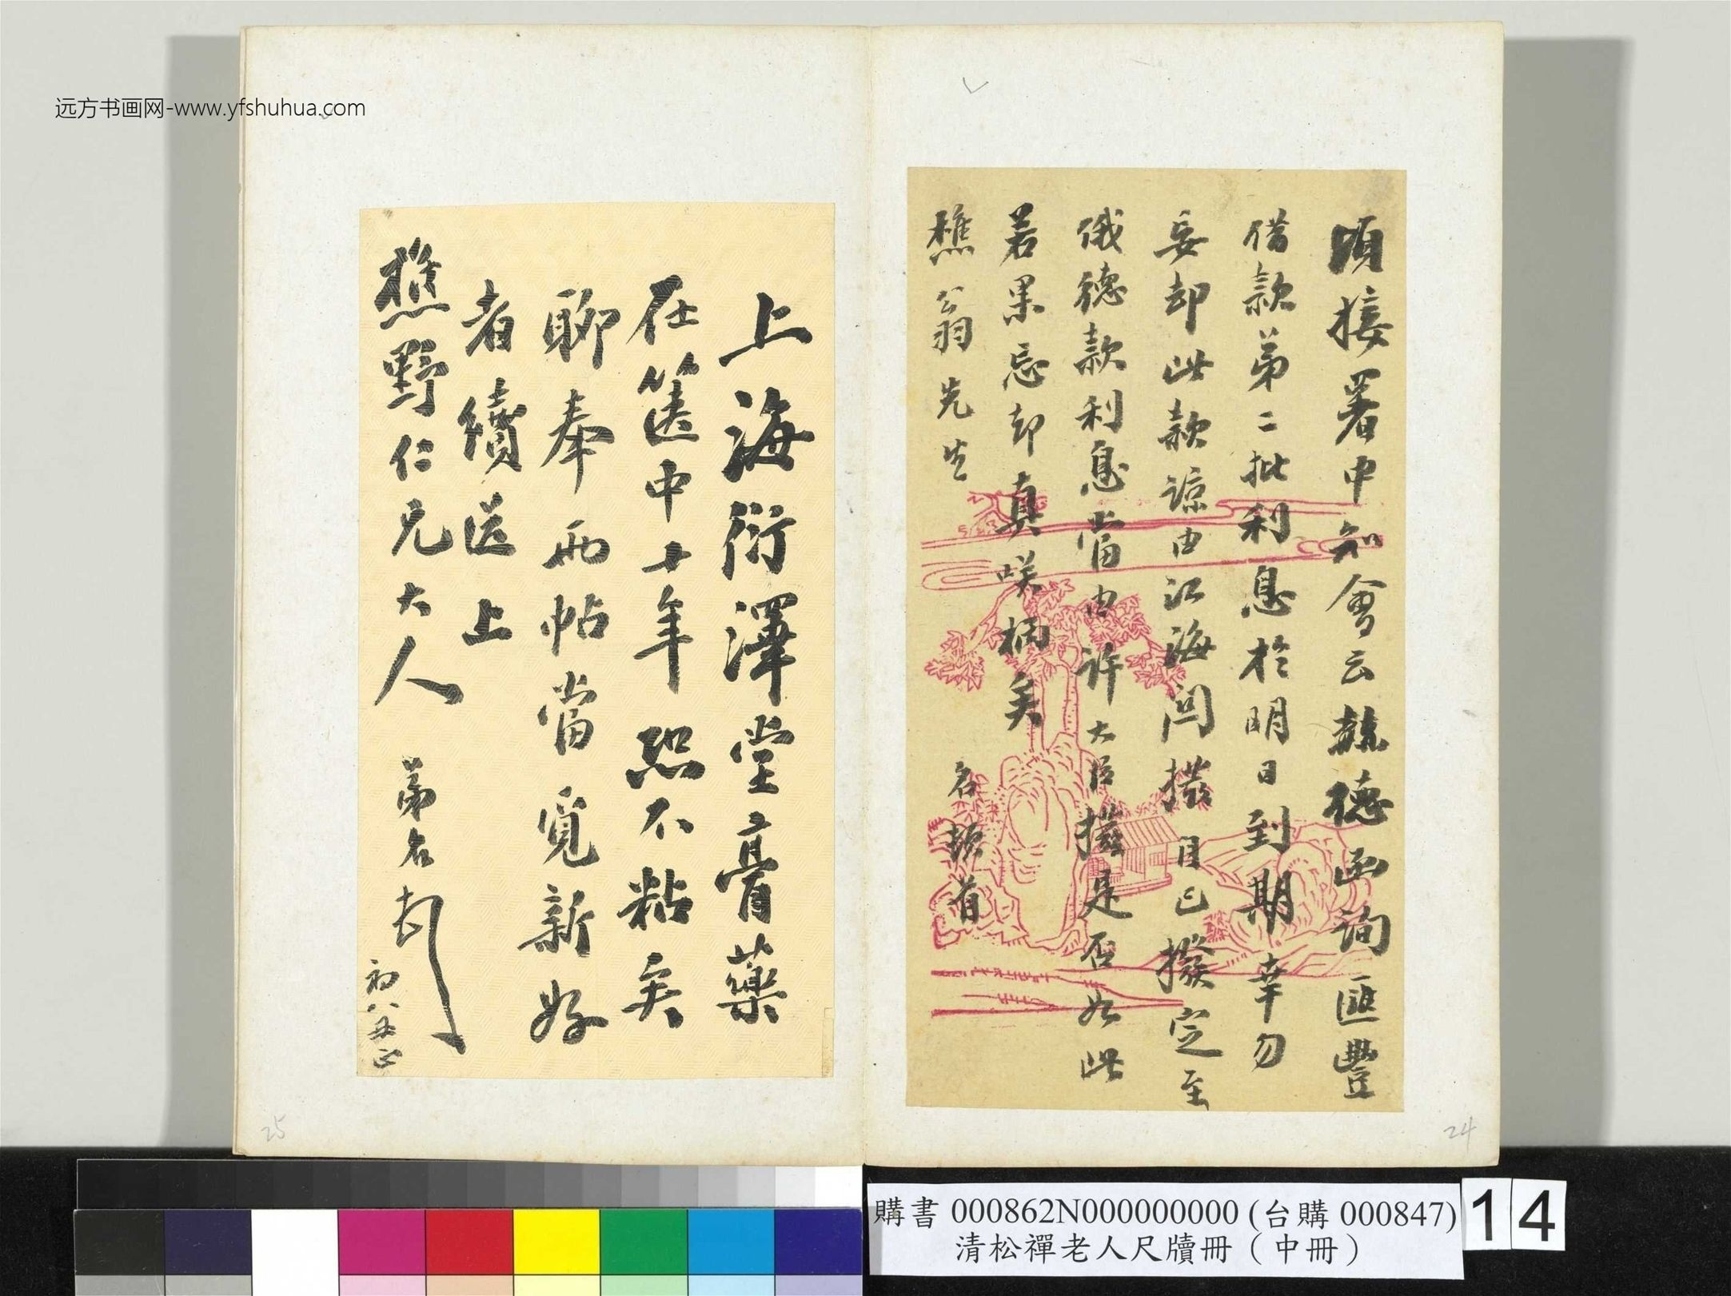 远方书画网-www.yfshuhua.com
頃接署中知會云赫德函詢匯豐
借款第二批利息於明日到期幸勿
妄却此款諒由江海關撥目已撥定至
俄德款利息當由許大臣撥是否如此
若果忘却真咲柄矣
樵翁先生
名頓首
24
上海衍澤堂膏藥
在篋中十年恐不粘矣
聊奉兩帖當覓新好
者續送上
樵野仁兄大人
弟名頓
初八
25
購書 000862N000000000 (台購 000847)
清松禪老人尺牘冊（中冊）
14